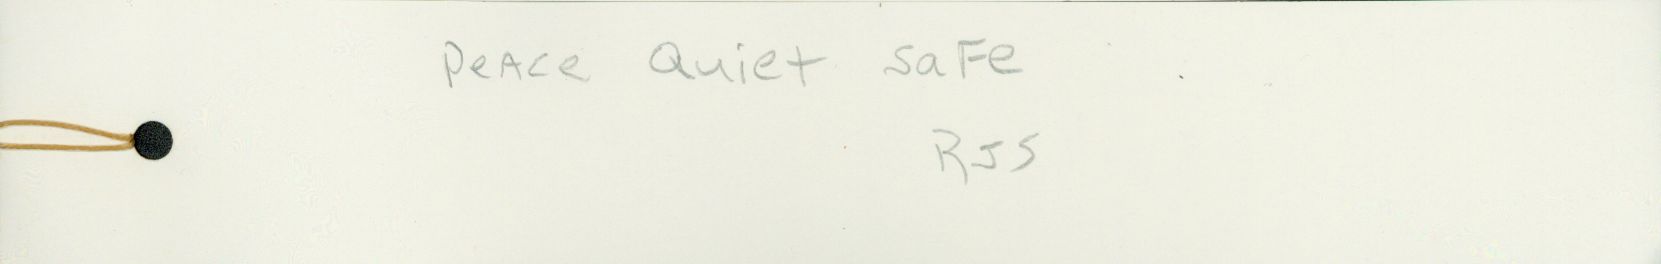 PeAce Quiet SaFe
RJS